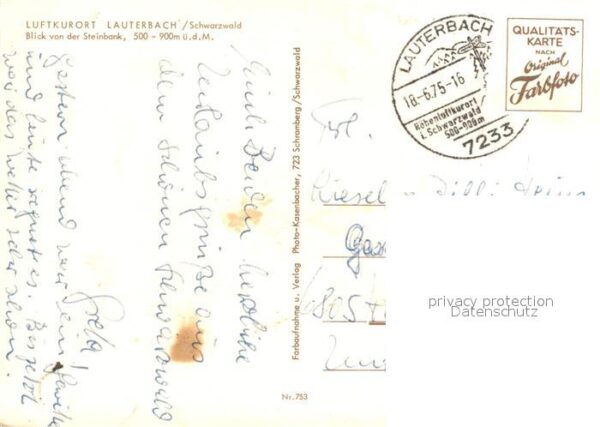 LUFTKURORT LAUTERBACH/Schwarzwald
Blick von der Steinbank, 500 - 900m ü.d.M.
Euch Beiden herzliche
Urlaubsgrüße aus
dem schönen Schwarzwald
Greta!
Gestern abend war ein
und heute regnet es. Bis jetzt
war das Wetter sehr schön.
Farbaufnahme u. Verlag Photo-Kasenbacher, 723 Schramberg/Schwarzwald
Nr. 753
LAUTERBACH
18.-6.75-16
Höhenluftkurort
i. Schwarzwald
500-900m
7233
QUALITÄTS-
KARTE
NACH
Original
Farbfoto
privacy protection
Datenschutz